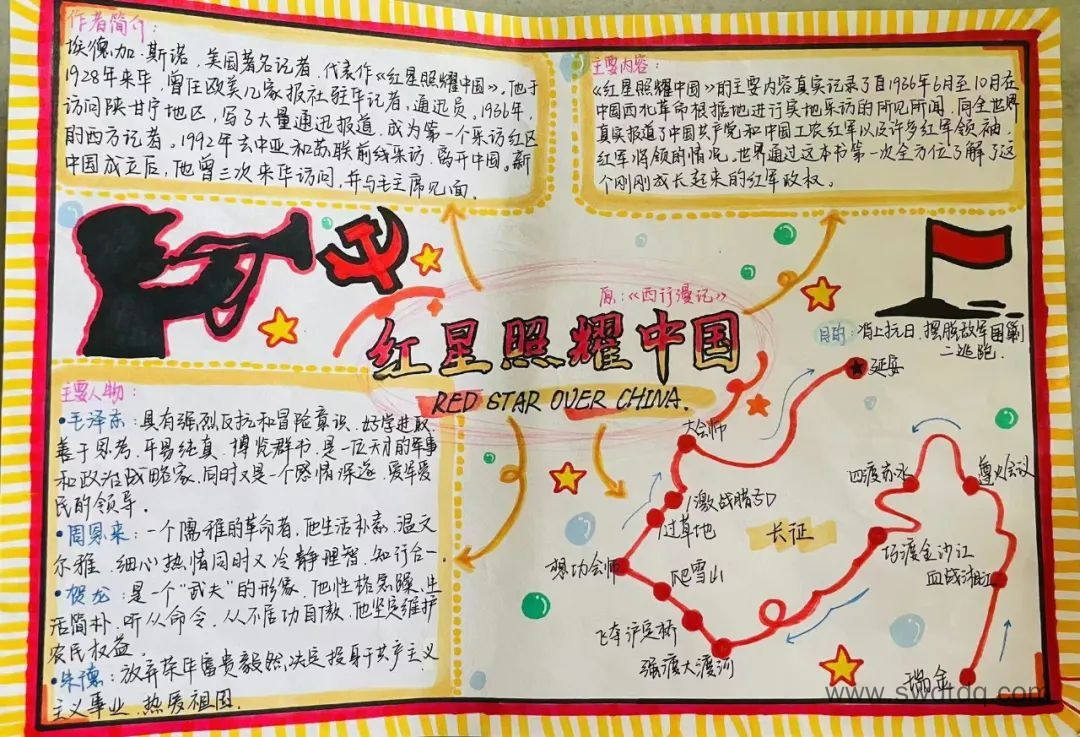 作者简介:
埃德加·斯诺,美国著名记者,代表作《红星照耀中国》,他于
1928年来华,曾任欧美几家报社驻华记者,通迅员。1936年,
访问陕甘宁地区,写了大量通迅报道,成为第一个采访红区
的西方记者。1992年去中亚和苏联前线采访,离开中国。新
中国成立后,他曾三次来华访问,并与毛主席见面。
主要内容:
《红星照耀中国》的主要内容真实记录了自1936年6月至10月在
中国西北革命根据地进行实地采访的所见所闻,同全世界
真实报道了中国共产党和中国工农红军以及许多红军领袖,
红军将领的情况。世界通过这本书第一次全方位了解了这
个刚刚成长起来的红军政权。
原:《西行漫记》
红星照耀中国
RED STAR OVER CHINA.
主要人物:
·毛泽东:具有强烈反抗和冒险意识,好学进取
善于思考,平易纯真,博览群书,是一位天才的军事
和政治战略家,同时又是一个感情深邃,爱军爱
民的领导。
·周恩来:一个儒雅的革命者,他生活朴素,温文
尔雅,细心热情同时又冷静理智,知行合一。
·贺龙:是一个"武夫"的形象,他性格急躁,生
活简朴,听从命令,从不居功自傲,他坚定维护
农民权益。
·朱德:放弃荣华富贵毅然决定投身于共产主义
主义事业,热爱祖国。
目的:北上抗日,摆脱敌军围剿
二逃跑.
延安
大会师
激战腊子口
过草地
长征
懋功会师
爬雪山
飞夺泸定桥
强渡大渡河
四渡赤水
遵义会议
巧渡金沙江
血战湘江
瑞金